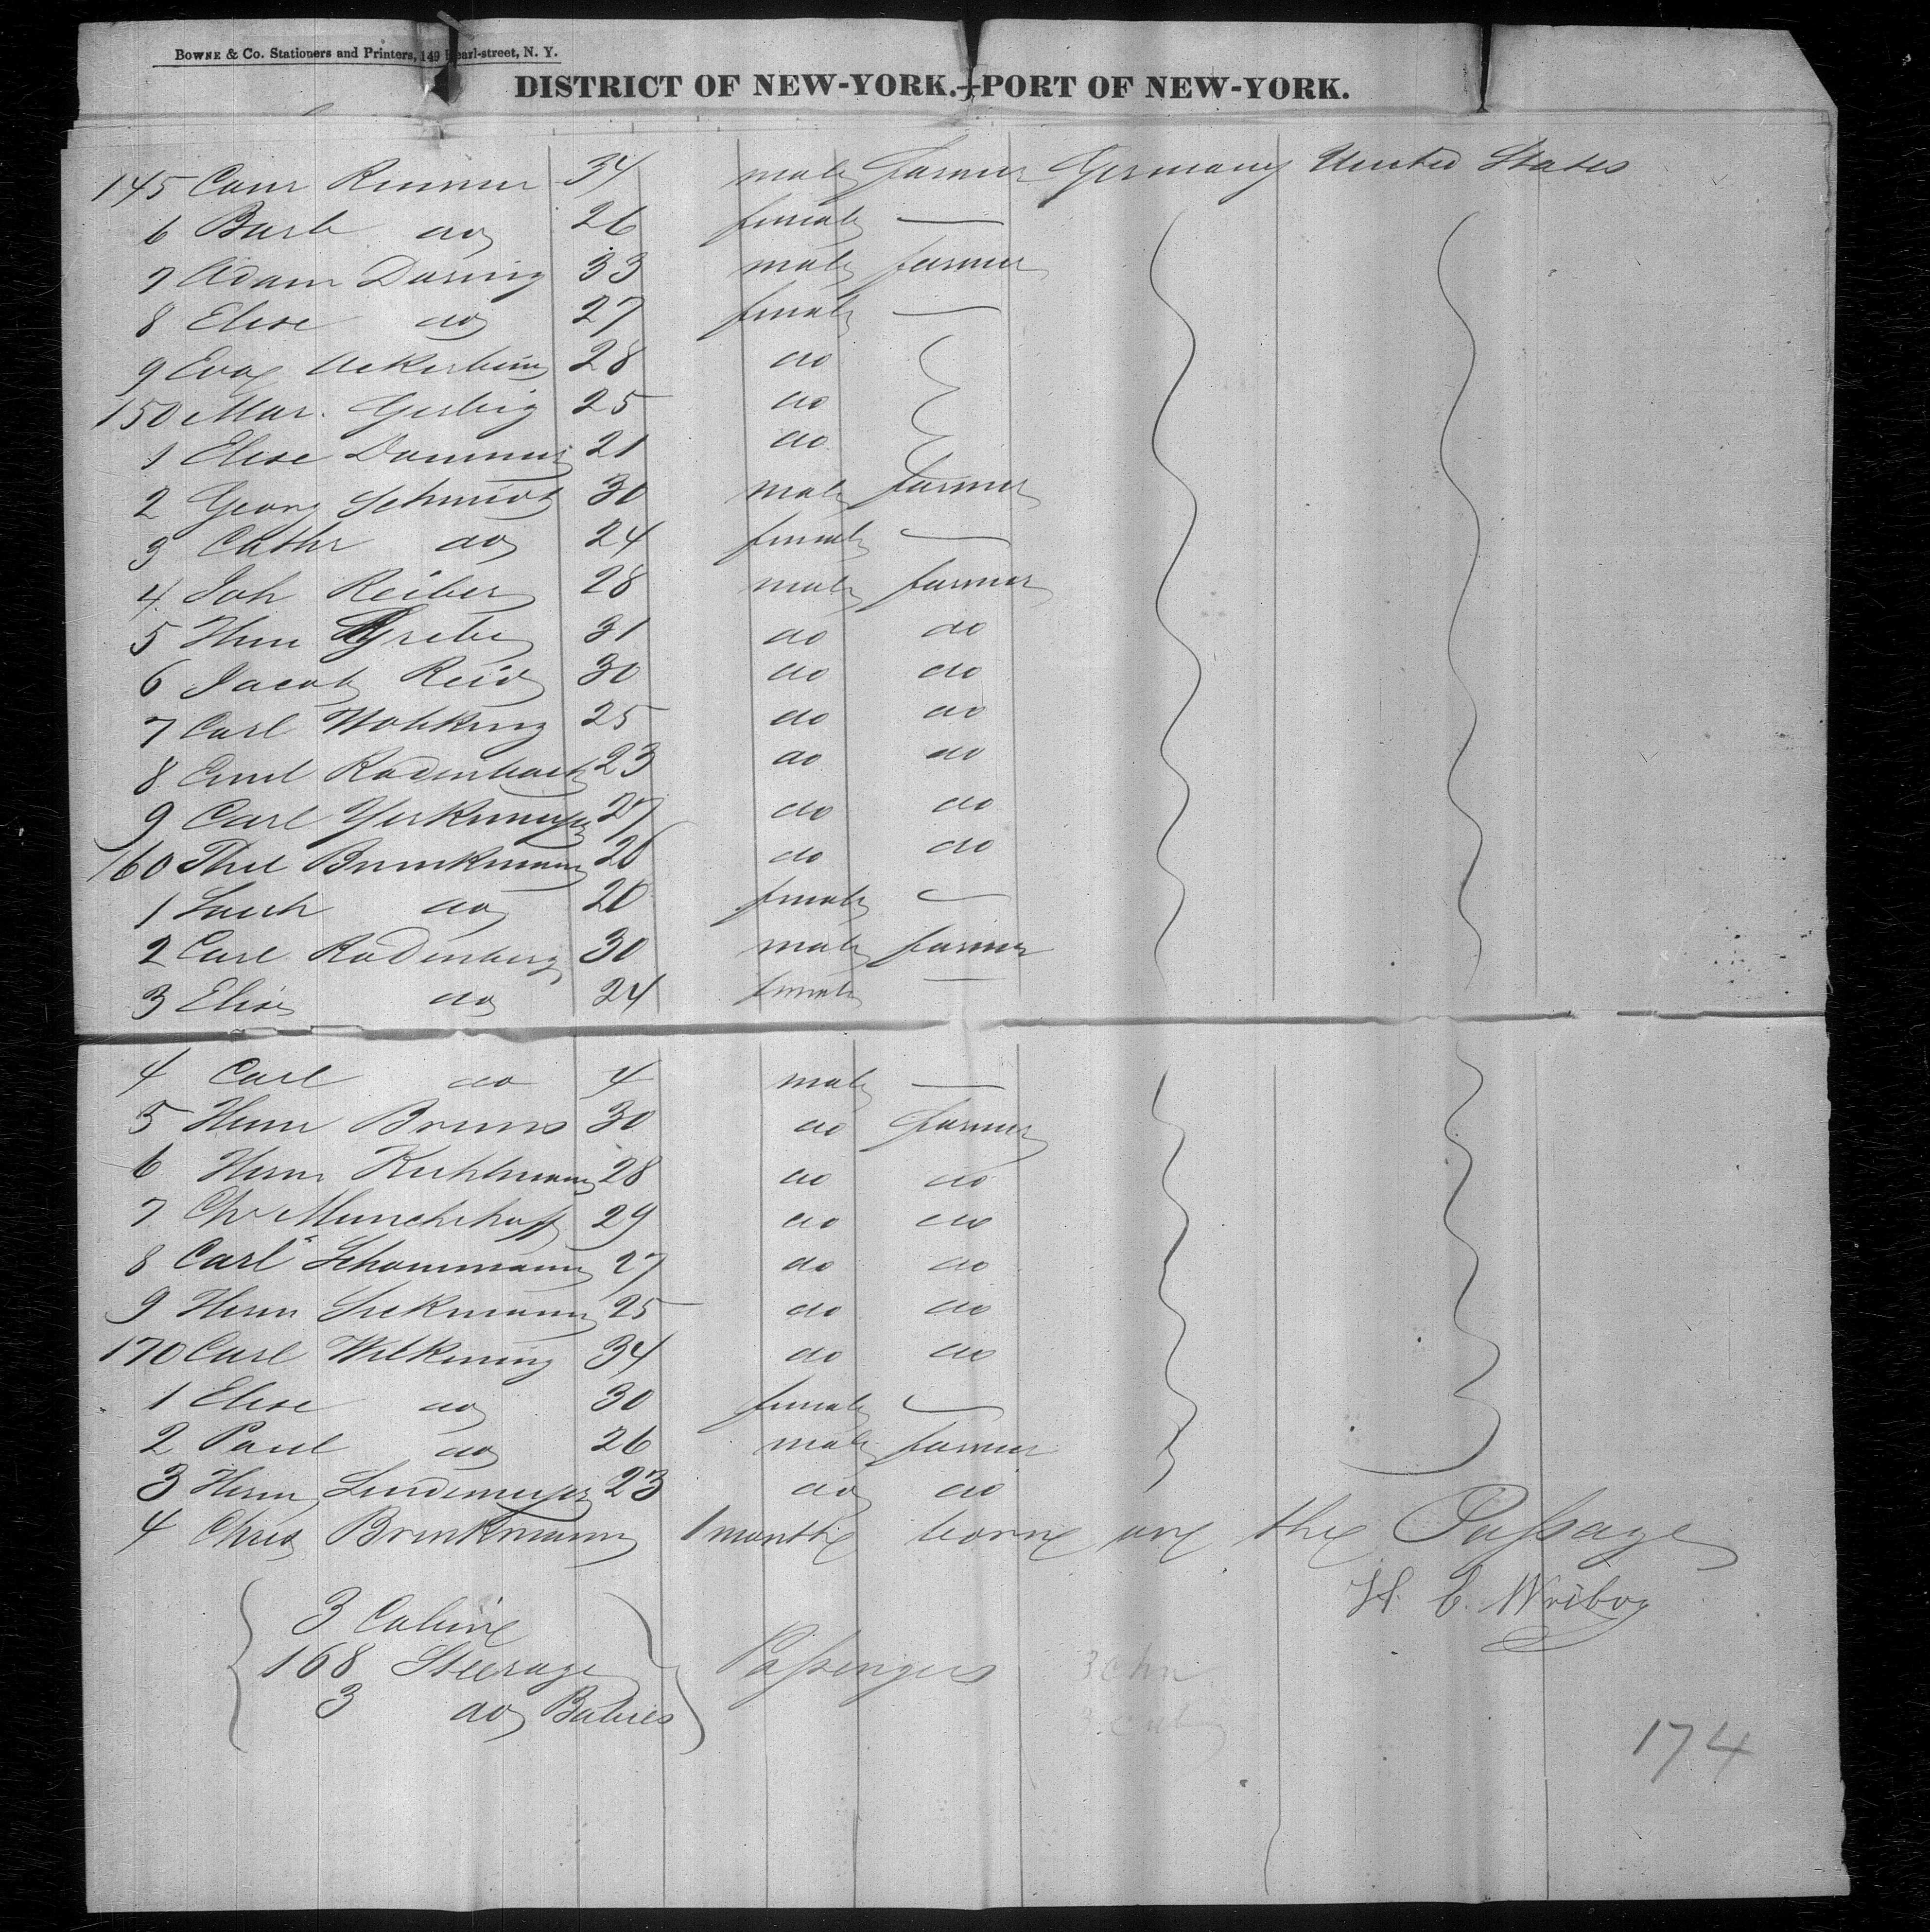 BOWNE & Co. Stationers and Printers, 149 Pearl-street, N. Y.
DISTRICT OF NEW-YORK.—PORT OF NEW-YORK.
145 34 male farmer Germany United States
6 Barb do 26 female —
7 Adam Doring 33 male farmer
8 Elise do 27 female —
9 Eva 28 do
150 Mar. Gerbig 25 do
1 Elise 21 do
2 Georg Schmidt 30 male farmer
3 Cathr do 24 female —
4 Joh Reiber 28 male farmer
5 Henr Grebe 31 do do
6 Jacob Reid 30 do do
7 Carl Wobking 25 do do
8 Emil Radenbach 23 do do
9 Carl 27 do do
160 Brinkmann 26 do do
1 do 20 female —
2 Carl Radenberg 30 male farmer
3 Elise do 24 female —
4 Carl do 4 male —
5 Henr Bruns 30 do farmer
6 Herm Kuhlmann 28 do do
7 Chr Munchhoff 29 do do
8 Carl Schonmann 27 do do
9 Herm Siekmann 25 do do
170 Carl Wilkening 34 do do
1 Elise do 30 female —
2 Paul do 26 male farmer
3 Herm Lindemeyer 23 do do
4 Chris Brinkmann 1 monthe borne on the Passage
3 Cabine
168 Steerage Passengers
3 do Babies
174